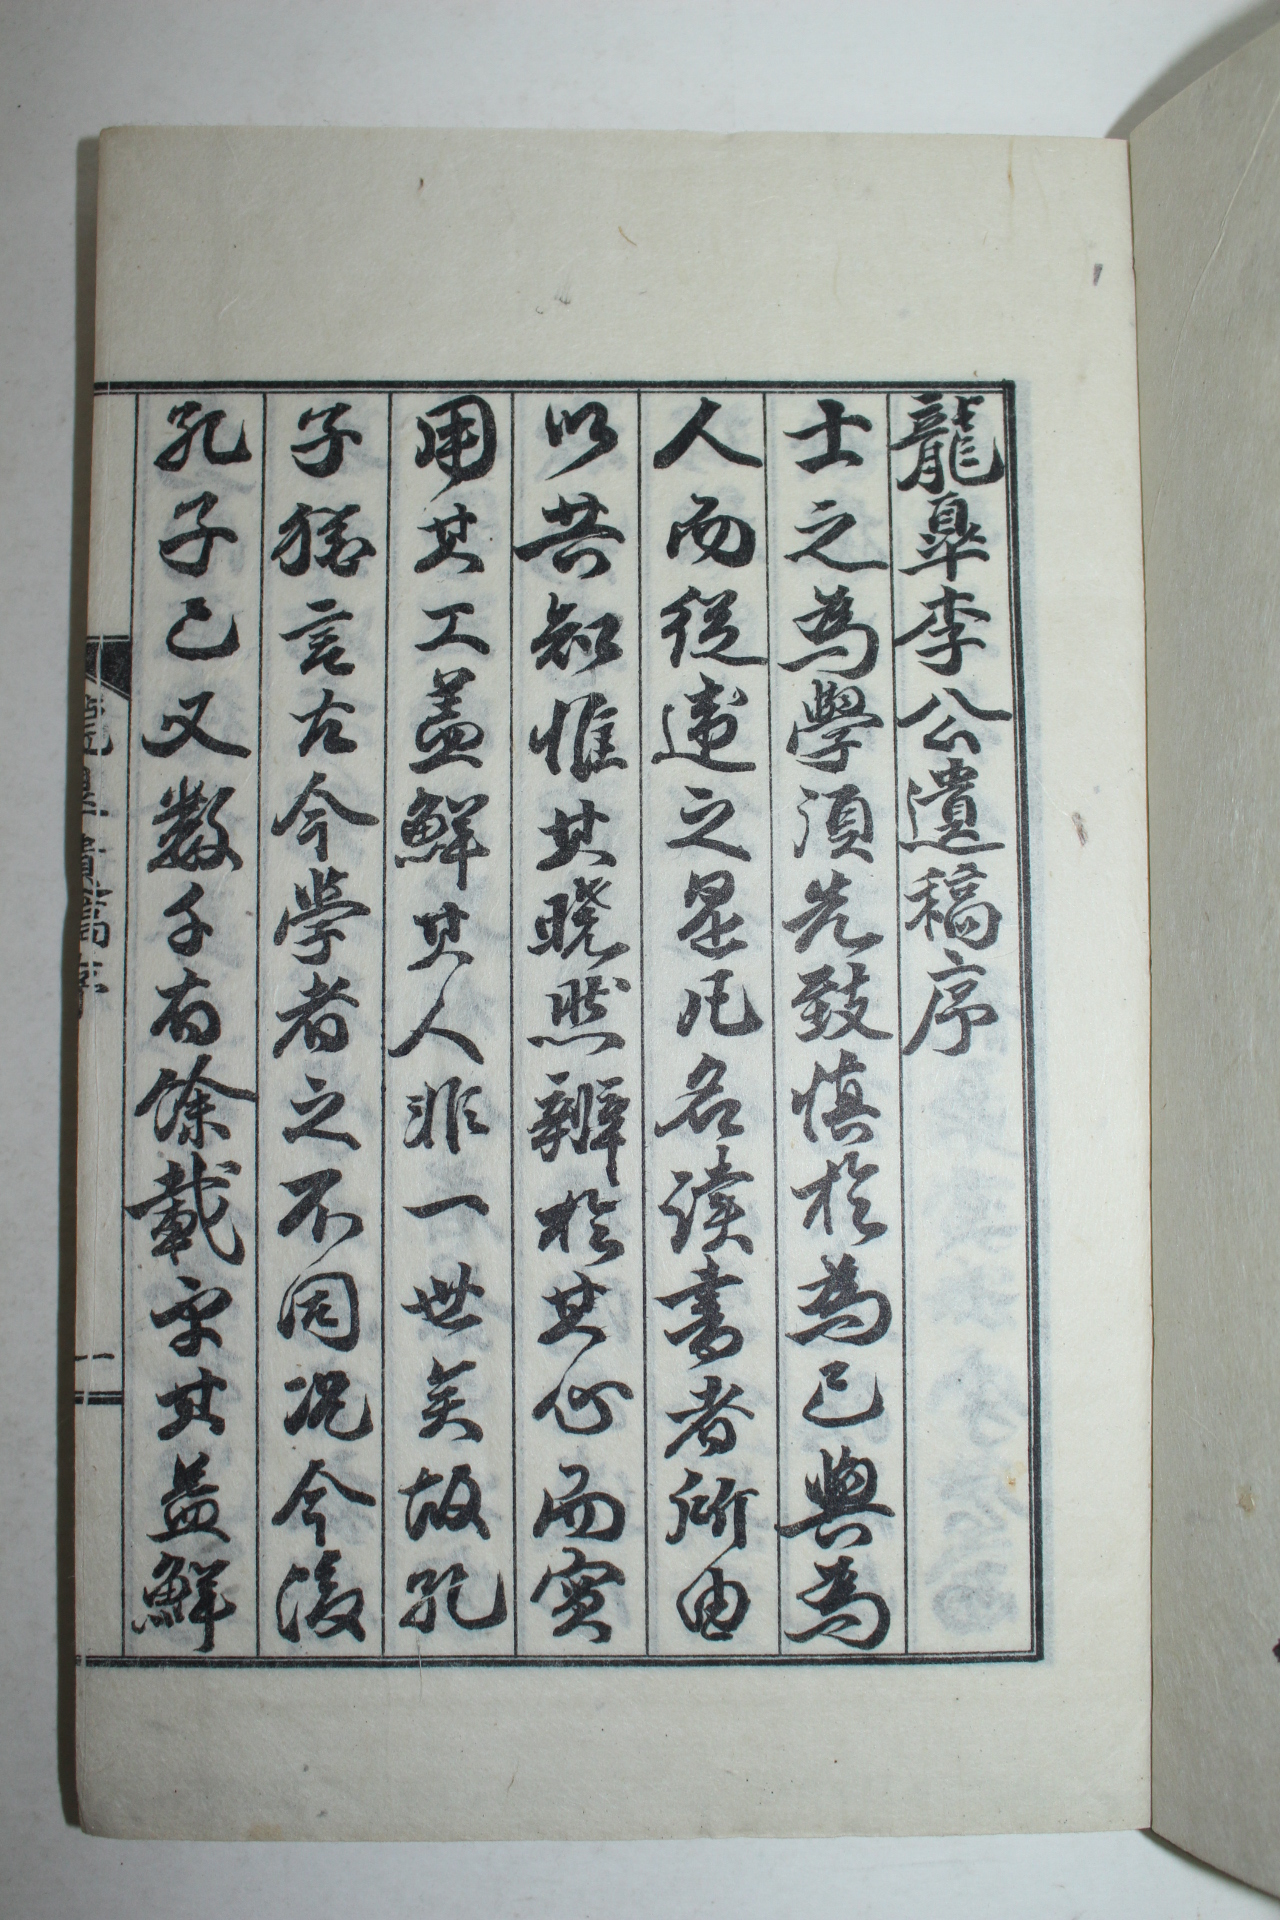 龍皐李公遺稿序
士之為學須先致慎於為己與為
人而從違之是凡名讀書者所由
以共知惟其曉然辨於其心而實
用其工盖鮮其人非一世矣故孔
子猶言古今學者之不同况今後
孔子已又數千有餘載乎其益鮮
龍皐遺稿序
一